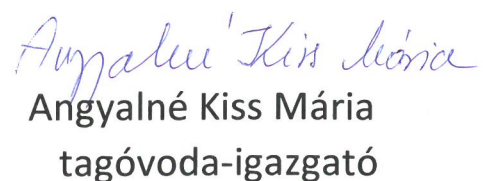 Angyalné Kiss Mária
Angyalné Kiss Mária
tagóvoda-igazgató